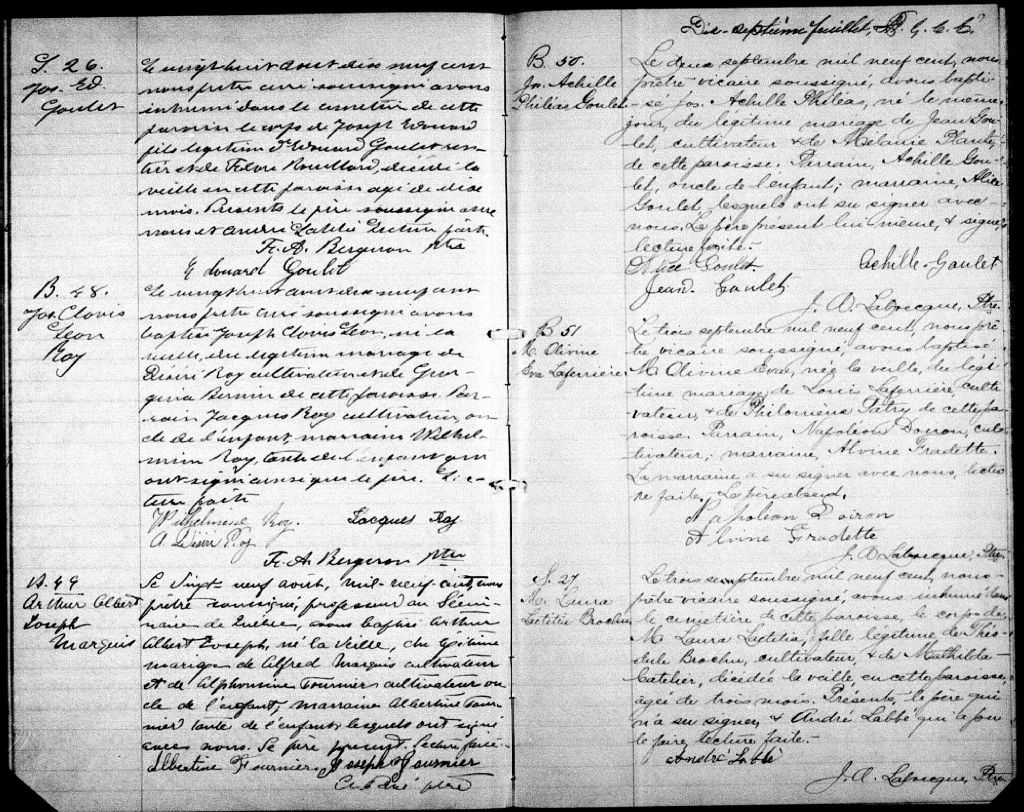 S. 26.
Jos. Ed.
Goulet
Le vingt huit aout dix neuf cent
nous prêtre curé soussigné avons
inhumé dans le cimetière de cette
paroisse le corps de Joseph Edouard
fils légitime d'Edouard Goulet ren-
tier et de Flore Rouillard, décédé la
veille en cette paroisse agé de dix
mois. Présents le père soussigné avec
nous et André Labbé Lecture faite.
Fr. A. Bergeron Ptre
Edouard Goulet
B. 48.
Jos. Clovis
Leon
Roy
Le vingt huit aout dix neuf cent
nous prêtre curé soussigné avons
baptisé Joseph Clovis Leon, né la
veille, du légitime mariage de
Désiré Roy cultivateur et de Geor-
gina Bernier de cette paroisse. Par-
rain Jacques Roy cultivateur on-
cle de l'enfant, marraine Wilhel-
mine Roy, tante de l'enfant qui
ont signé ainsi que le père. Lec-
ture faite
Wilhelmine Roy. Jacques Roy
A Désiré Roy
Fr. A. Bergeron Ptre
B. 49
Arthur Albert
Joseph
Marquis
Le vingt neuf aout, mil-neuf-cent, nous
prêtre soussigné, professeur au Sémi-
naire de Québec, avons baptisé Arthur
Albert Joseph, né la veille, du légitime
mariage de Alfred Marquis cultivateur
et de Alphonsine Fournier cultivateur on
cle de l'enfant, marraine Albertine Four-
nier tante de l'enfant lesquels ont signé
avec nous. Le père présent. Lecture faite
Albertine Fournier Joseph Fournier
ptre
Dix-septième feuillet, G. C. C.
B. 50.
Jos. Achille
Philéas Goulet
Le deux septembre mil neuf cent, nous
prêtre vicaire soussigné, avons bapti-
sé Jos. Achille Philéas, né le même
jour, du légitime mariage de Jean Gou-
let, cultivateur & de Mélanie Plante,
de cette paroisse. Parrain, Achille Gou-
let, oncle de l'enfant; marraine, Alice
Goulet, lesquels ont su signer avec
nous. Le père présent lui-même, & signe,
lecture faite.-
Alice Goulet. Achille Goulet
Jean Goulet
J. A. Labrecque, Ptre
B 51
M. Olivine
Eva Laferrière
Le trois septembre mil neuf cent, nous prê-
tre vicaire soussigné, avons baptisé
M Olivine Eva, née la veille, du légi-
time mariage de Louis Laferrière, culti-
vateur, & de Philomène Patry de cette pa-
roisse. Parrain, Napoléon Doiron, cul-
tivateur; marraine, Alvine Fradette.
La marraine a su signer avec nous, lectu-
re faite. Le père absent.
Napoléon Doiron
Alvine Fradette
J. A Labrecque, Ptre
S. 27
M. Laura
Laetitia Brochu
Le trois septembre mil neuf cent, nous
prêtre vicaire soussigné, avons inhumé dans
le cimetière de cette paroisse, le corps de
M Laura Laetitia, fille légitime de Théo-
dule Brochu, cultivateur, & de Mathilda
Catelier, décédée la veille en cette paroisse,
agée de trois mois. Présents, le père qui
n'a su signer, & André Labbé qui a su
le faire, lecture faite.-
André Labbé
J. A. Labrecque, Ptre